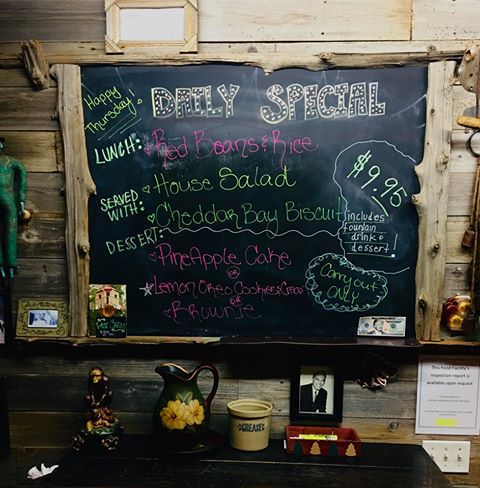 Happy
Thursday!
DAILY SPECIAL
LUNCH:
Red Beans & Rice
House Salad
SERVED
WITH:
Cheddar Bay Biscuit
DESSERT:
PineApple Cake
OR
Lemon Oreo Cookies & Cream
OR
Brownie
$9.95
includes
fountain
drink &
dessert!
Carry out
ONLY
GREASE
This Food Facility's
inspection report is
available upon request